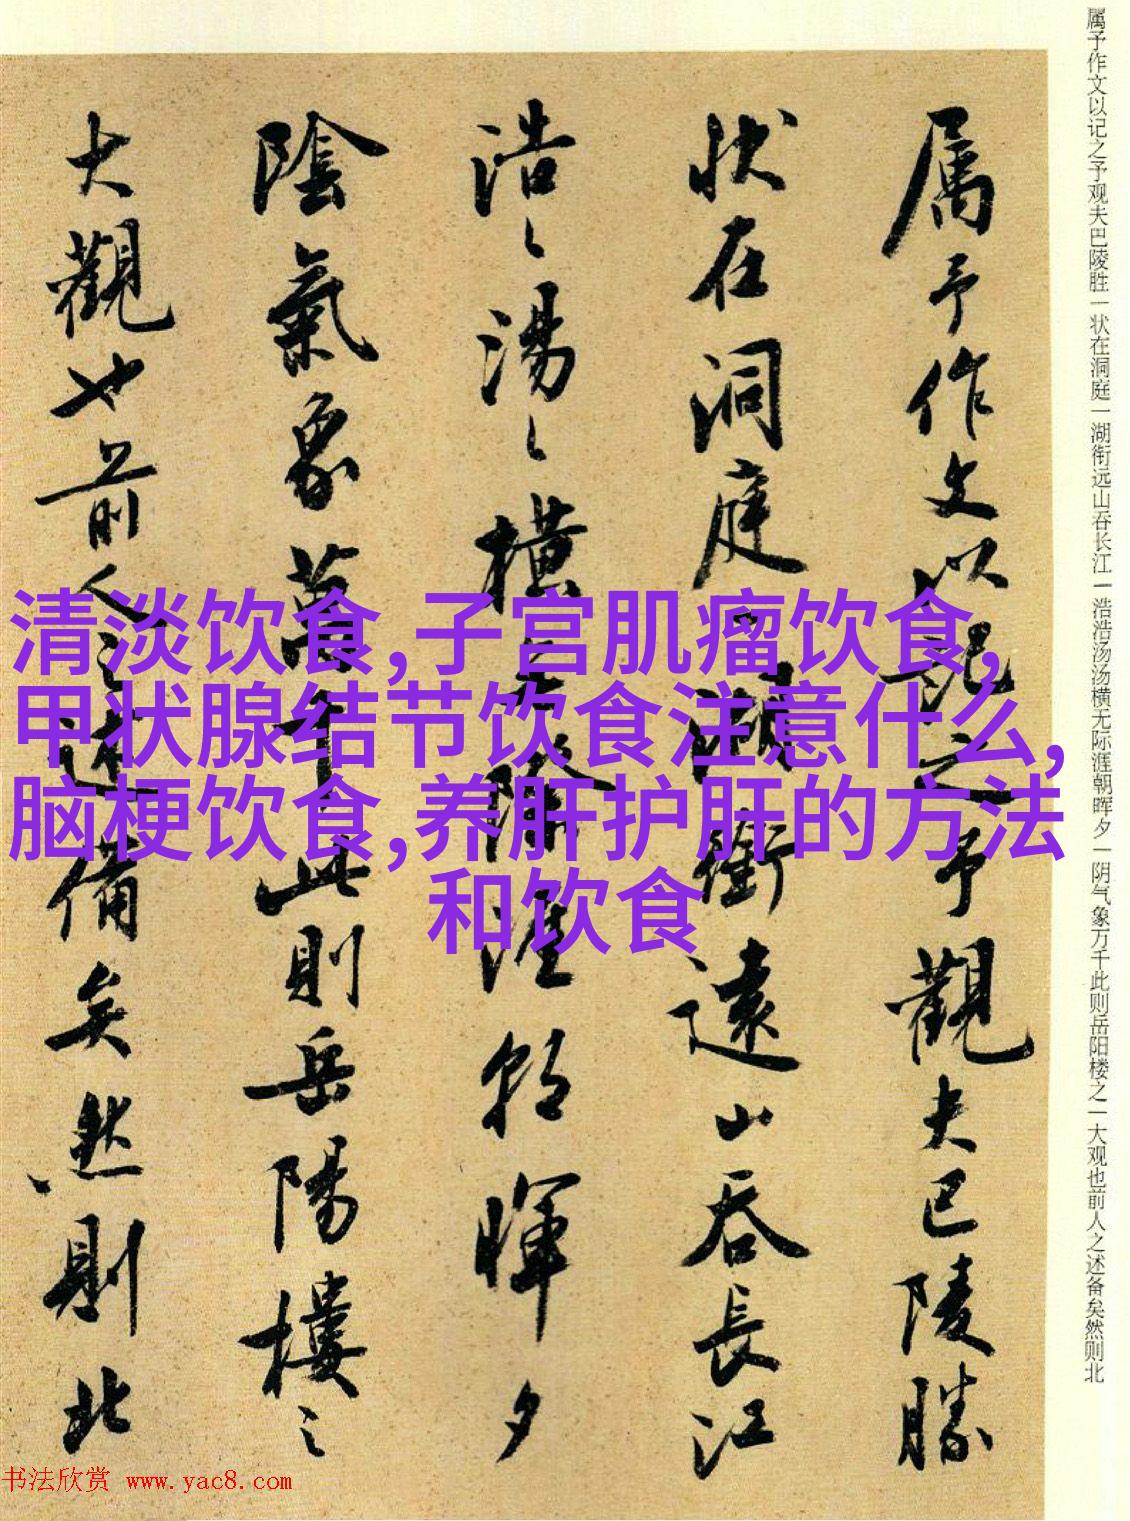 属予作文以记之予观夫巴陵胜一状在洞庭一湖衔远山吞长江一浩浩汤汤横无际涯朝晖夕一阴气象万千此则岳阳楼之一大观也前人之述备矣然则北
属予作文以記之予觀夫巴陵勝
状在洞庭一湖銜遠山吞長江
浩〻湯〻橫無際涯朝暉夕
陰氣象萬千此則岳陽樓之
大觀也前人之述備矣然則北
清淡饮食,子宫肌瘤饮食,
甲状腺结节饮食注意什么,
脑梗饮食,养肝护肝的方法
和饮食
书法欣赏 www.yac8.com